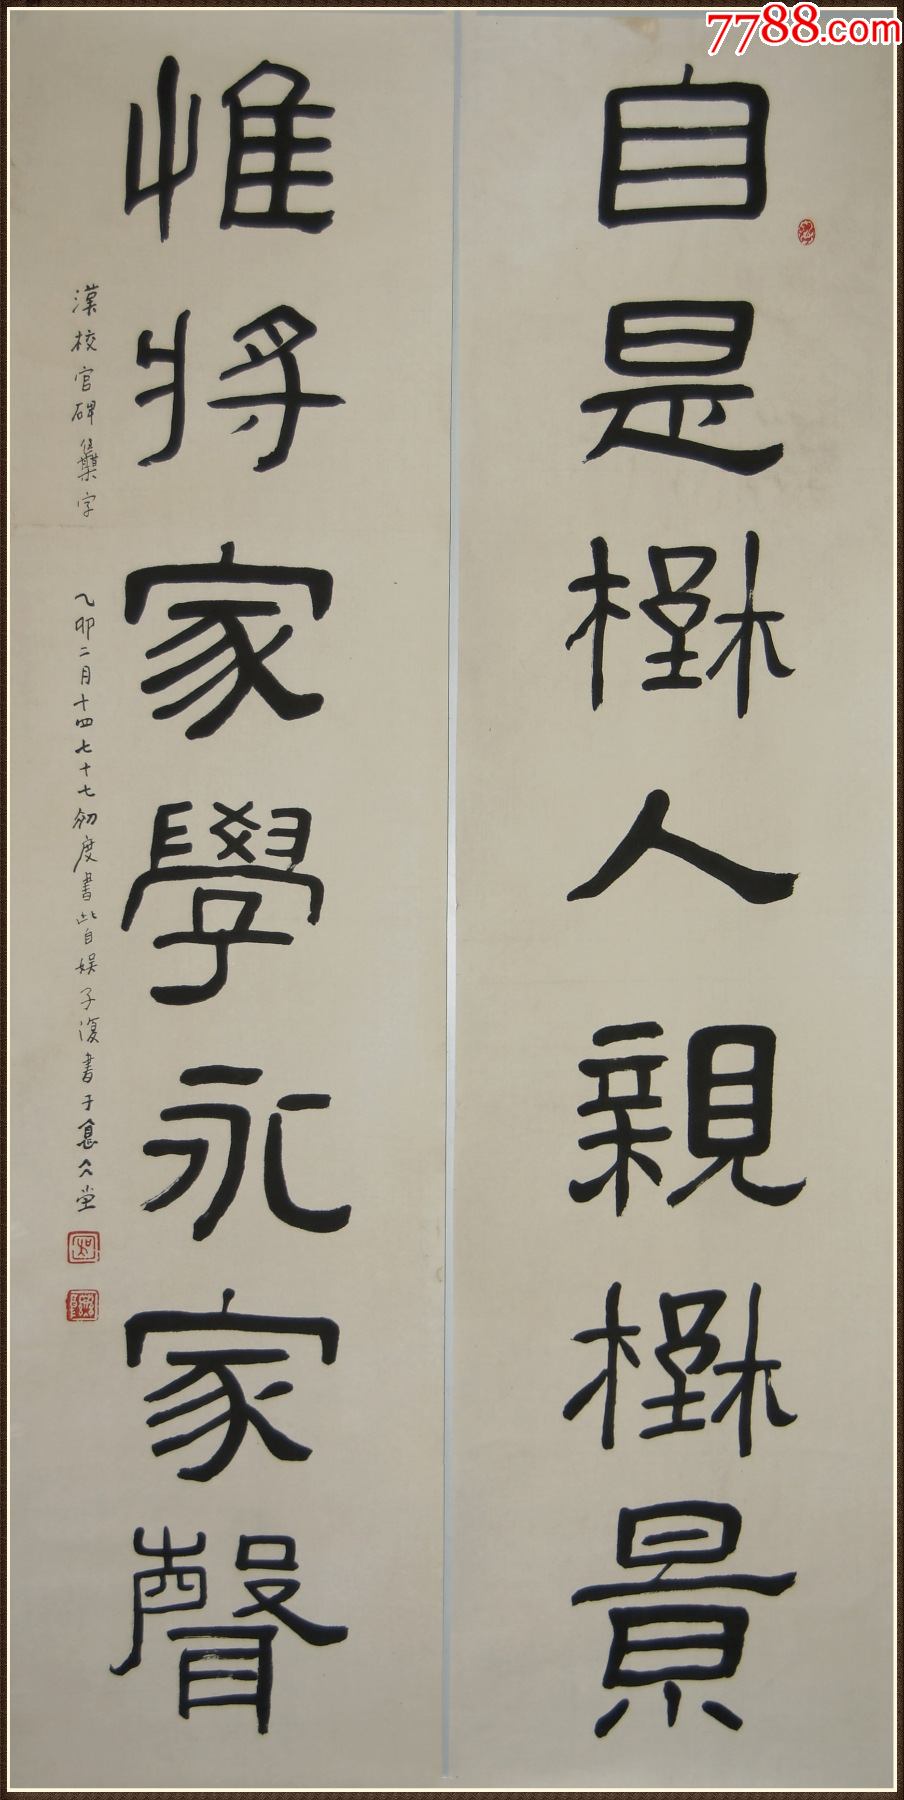 7788.com
自是壄人親壄景
惟將家學永家聲
漢校官碑雧字
乙卯二月十四七十七初度書此自娛子復書于堂